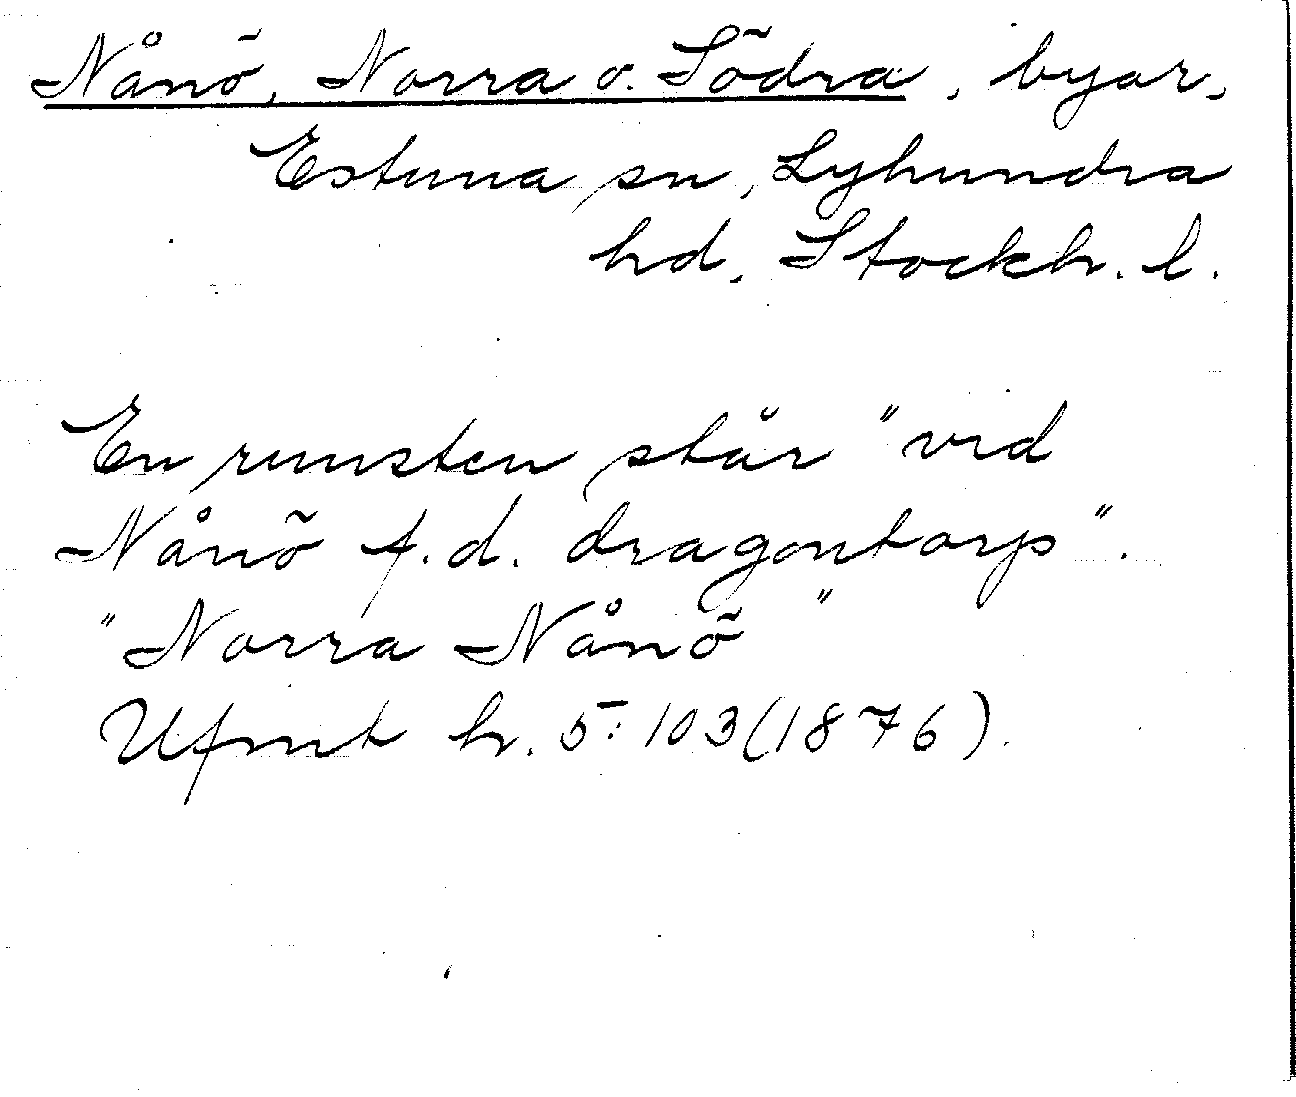 Nånö, Norra o. Södra, byar,
Estuna sn, Lyhundra
hd, Stockh. l.
En runsten står "vid
Nånö f.d. dragontorp".
"Norra Nånö"
Ufmt h. 5:103(1876).